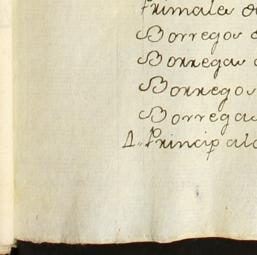 Primale
Borregos
Borregas
Borregos
Borregas
1.. Princip alo